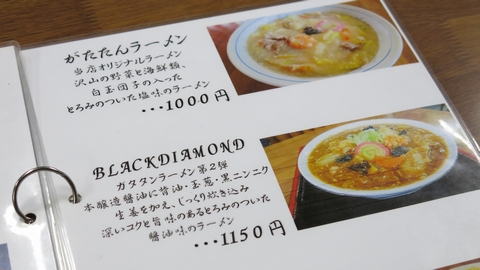 がたたんラーメン
当店オリジナルラーメン
沢山の野菜と海鮮類、
白玉団子の入った
とろみのついた塩味のラーメン
･･･1000円
BLACKDIAMOND
ガタタンラーメン第2弾
本醸造醤油に昔油･玉葱･黒ニンニク
生姜を加え、じっくり炊き込み
深いコクと旨味のあるとろみのついた
醤油味のラーメン
･･･1150円